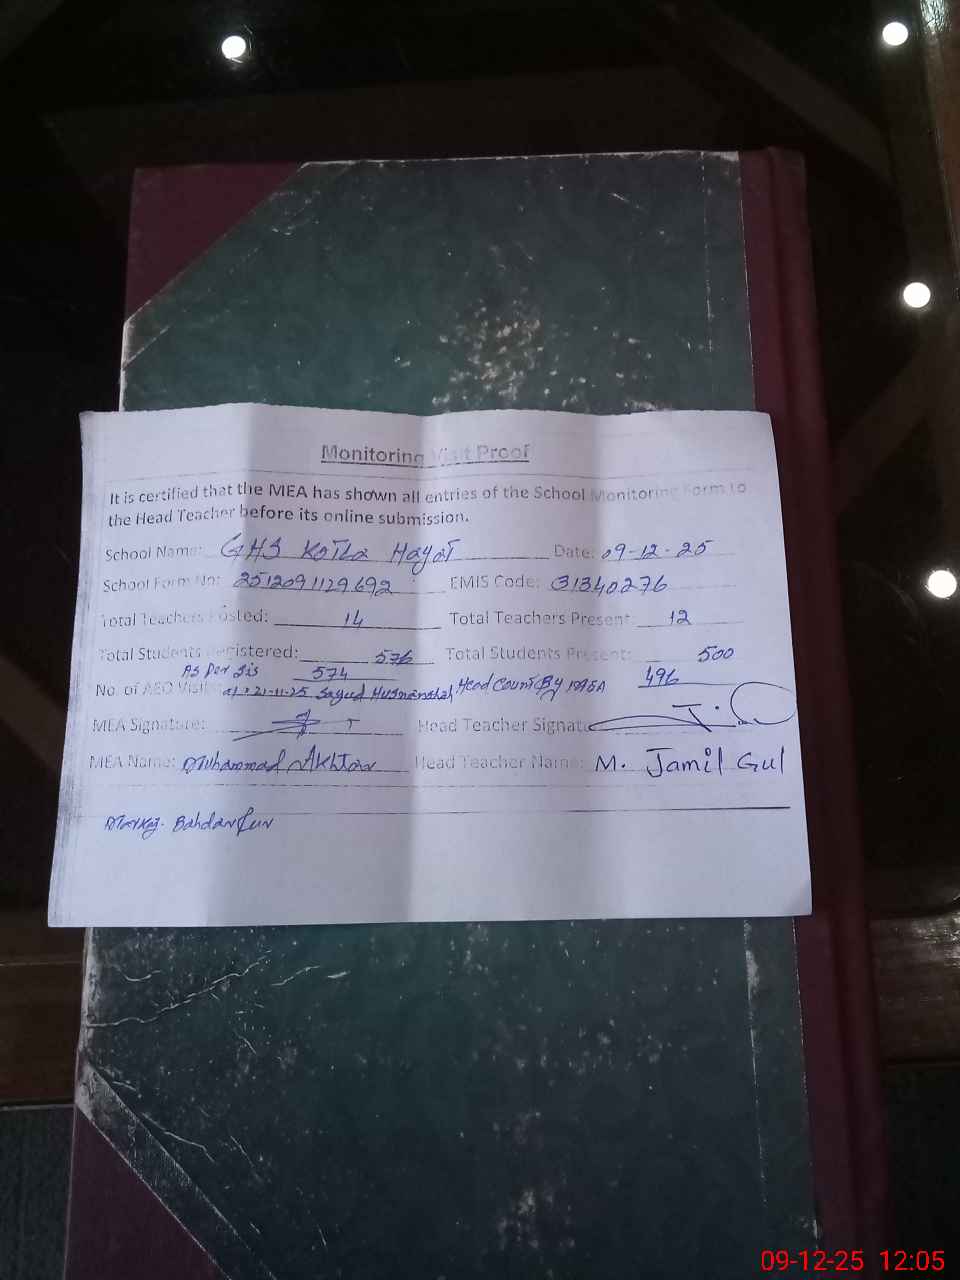 Monitoring Visit Proof
It is certified that the MEA has shown all entries of the School Monitoring Form to
the Head Teacher before its online submission.
School Name: GHS Kotla Hayat Date: 09-12-25
School Form No: 2512091129692 EMIS Code: 31340276
Total Teachers Posted: 14 Total Teachers Present: 12
Total Students Registered: 576 Total Students Present: 500
As per Sis 574 496
No. of AEO Visits: 21-11-25 Head Count By
MEA Signature: Head Teacher Signatu
MEA Name: Muhammad Akhtar Head Teacher Name: M. Jamil Gul
Markaz.
09-12-25 12:05